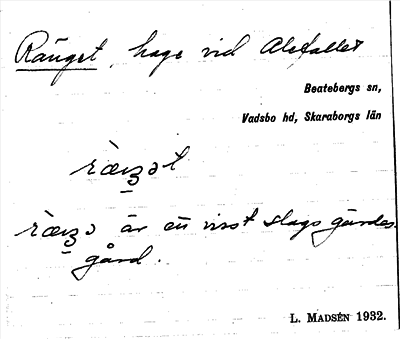 Ränget, hage vid Alefallet
Beatebergs sn,
Vadsbo hd, Skaraborgs län
är ett visst slags gärdes-
gård.
L. MADSÉN 1932.